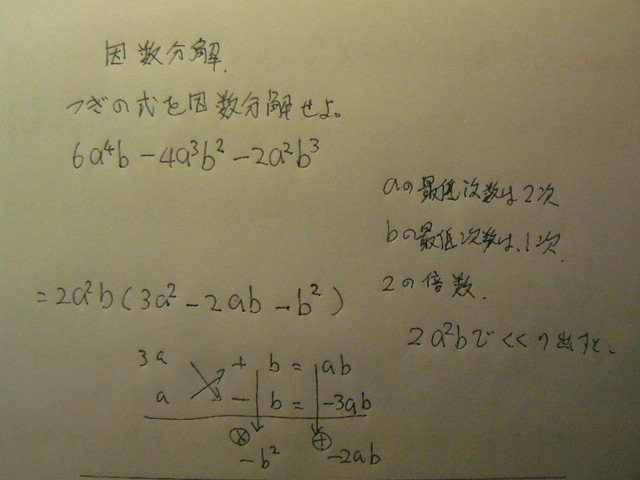 因数分解.
つぎの式を因数分解せよ。
6a⁴b − 4a³b² − 2a²b³
aの最低次数は2次
bの最低次数は、1次.
2の倍数.
2a²bでくくり出すと、
= 2a²b(3a² − 2ab − b²)
3a + b = ab
a − b = −3ab
⊗ ⊕
−b² −2ab